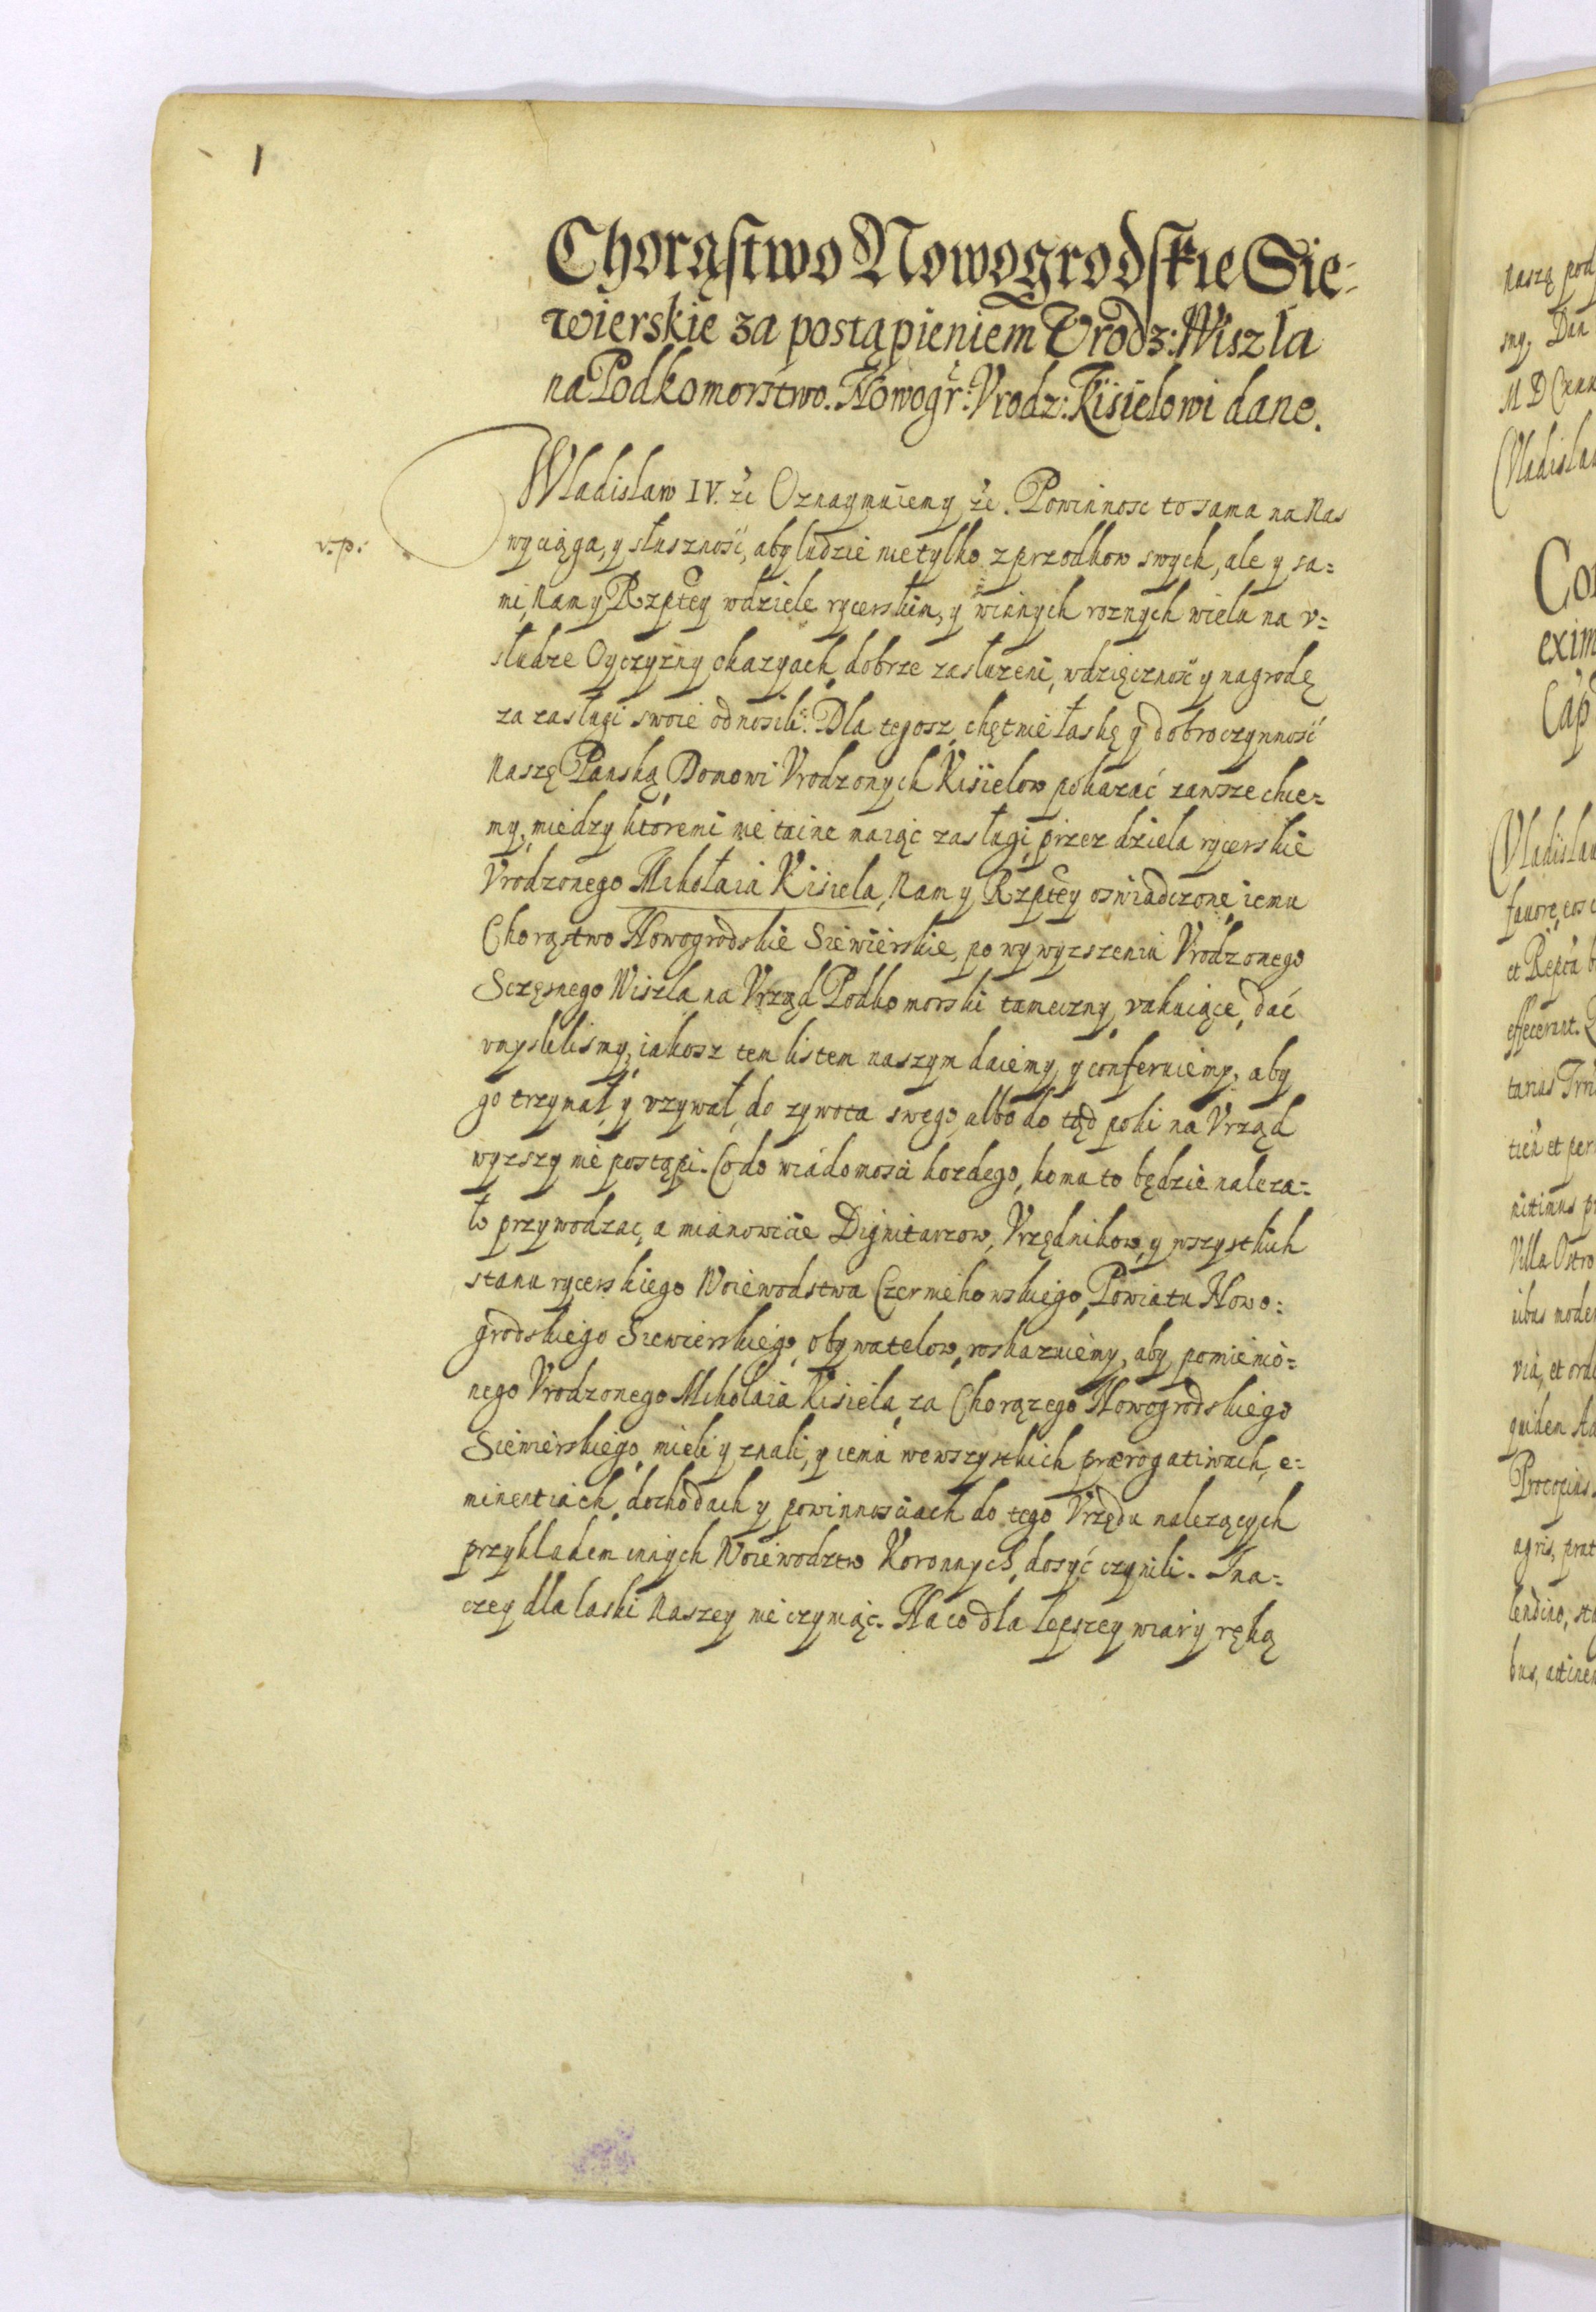 1
Chorąstwo Nowogrodskie Sie-
wierskie za postąpieniem Vrodz: Wiszla
na Podkomorstwo. Nowogr: Vrodz: Kisielowi dane.
Wladislaw IV. &c Oznaymuiemy &c. Powinnosc to sama na Nas
v. p.
wyciąga, y słuszność, aby ludzie nie tylko z przodkow swych, ale y sa=
mi, Nam y Rzptey w dziele rycerskim, y w innych roznych wielu na v=
sludze Oyczyzny okazyach, dobrze zasluzeni, wdzięcznośc y nagrodę
za zasługi swoie odnosili. Dla tegosz, chętnie łaskę y dobroczynność
Naszę Panską, Domowi Vrodzonych Kisielow pokazać zawsze chce=
my, miedzy ktoremi nie taine maiąc zasługi, przez dziela rycerskie
Vrodzonego Mikołaia Kisiela, Nam y Rzptey oswiadczone, iemu
Chorąstwo Nowogrodskie Siewierskie, po wywyzszeniu Vrodzonego
Sczęsnego Wiszla na Vrząd Podkomorski tameczny, vakuiące, dać
vmyslilismy, iakosz tem listem naszym daiemy, y conferuiemy, aby
go trzymał, y vzywał, do zywota swego, albo do tąd poki na Vrząd
wyzszy nie postąpi. Co do wiadomosci kozdego, komu to będzie naleza=
ło przywodząc, a mianowicie Dignitarzow, Vrzędnikow, y wszystkich
stanu rycerskiego Woiewodstwa Czerniehowskiego, Powiatu Nowo=
grodskiego Siewierskiego, obywatelow, roskazuiemy, aby pomienio=
nego Vrodzonego Mikolaia Kisiela, za Chorązego Nowogrodskiego
Siewierskiego, mieli y znali, y iemu we wszystkich prærogatiwach, e=
minentiach, dochodach y powinnosciach do tego Vrzędu nalezących
przykladem innych Woiewodztw Koronnych, dosyć czynili. Ina=
czey dla laski Naszey nie czyniąc. Na co dla lepszey wiary ręką